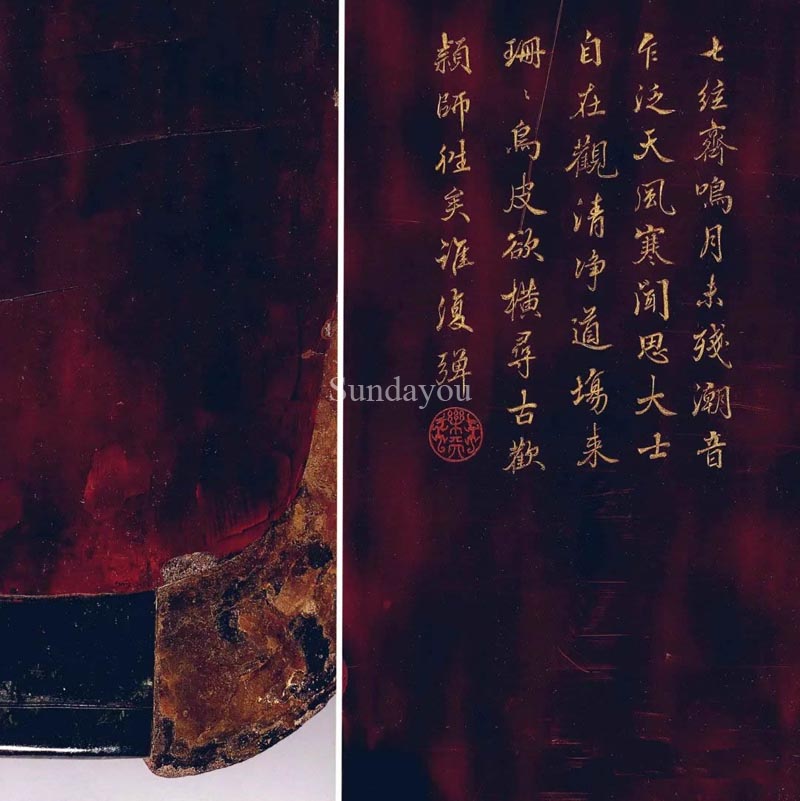 七絃齊鳴月未殘潮音
乍泛天風寒聞思大士
自在觀清淨道場來
珊〻烏皮欲橫尋古歡
穎師往矣誰復彈
Sundayou